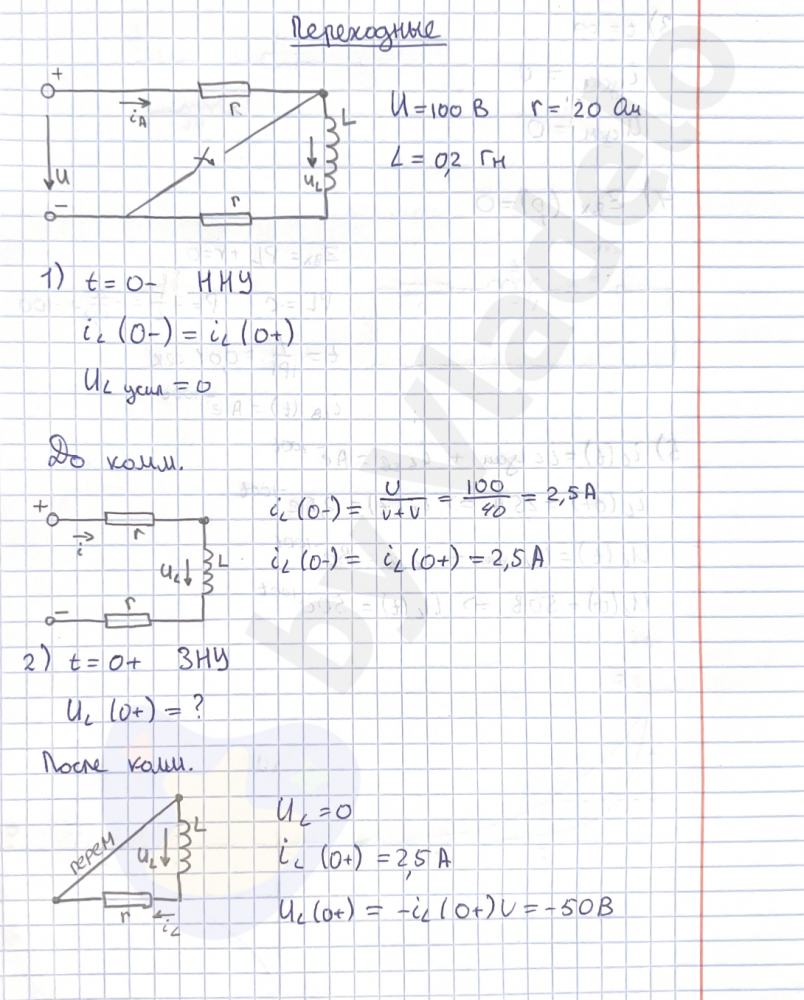 Переходные
+
iA
r
L
U = 100 В r = 20 Ом
U
UL
L = 0,2 Гн
−
r
1) t = 0− ННУ
iL (0−) = iL (0+)
UL усил = 0
До комм.
+
i
r
UL
L
−
r
iL (0−) = U / (r + r) = 100 / 40 = 2,5 А
iL (0−) = iL (0+) = 2,5 А
2) t = 0+ ЗНУ
UL (0+) = ?
После комм.
перем
L
UL
r
iL
UL = 0
iL (0+) = 2,5 А
UL (0+) = −iL (0+) r = −50 В
by Vladeto